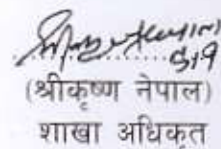 (श्रीकृष्ण नेपाल)
शाखा अधिकृत